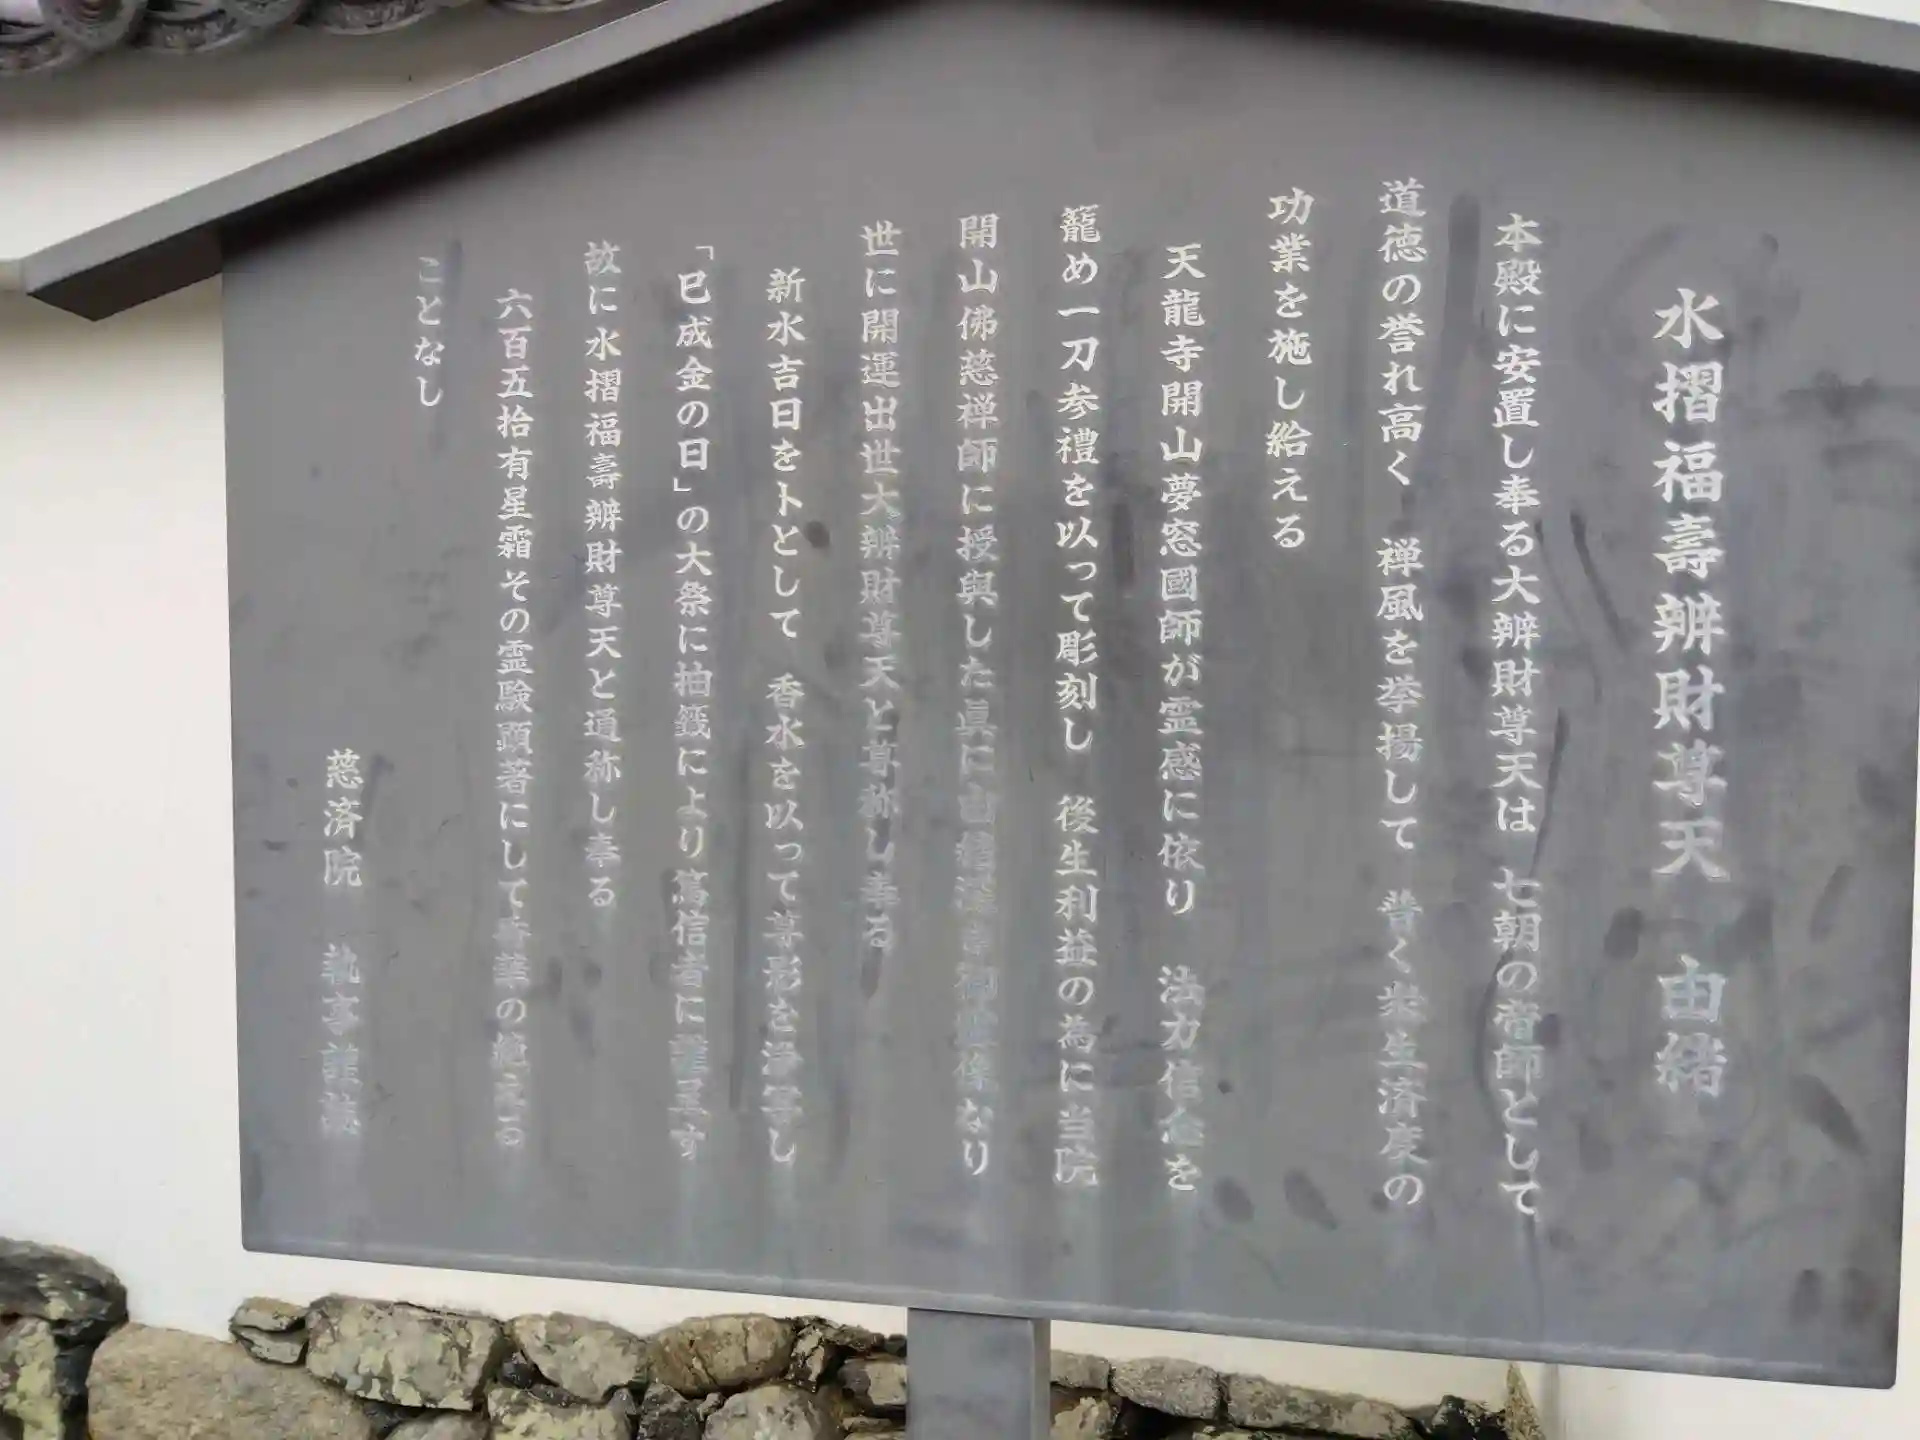 水摺福壽辨財尊天 由緒
本殿に安置し奉る大辨財尊天は 七朝の帝師として
道徳の誉れ高く 禅風を挙揚して 普く衆生済度の
功業を施し給える
天龍寺開山夢窓國師が霊感に依り 法力信念を
籠め一刀参禮を以って彫刻し 後生利益の為に当院
開山佛慈禅師に授與した眞に由緒深き御尊像なり
世に開運出世大辨財尊天と尊称し奉る
新水吉日をトとして 香水を以って尊影を浄写し
「巳成金の日」の大祭に抽籤により篤信者に謹呈す
故に水摺福壽辨財尊天と通称し奉る
六百五拾有星霜その霊験顕著にして香華の絶える
ことなし
慈済院 執事謹誌